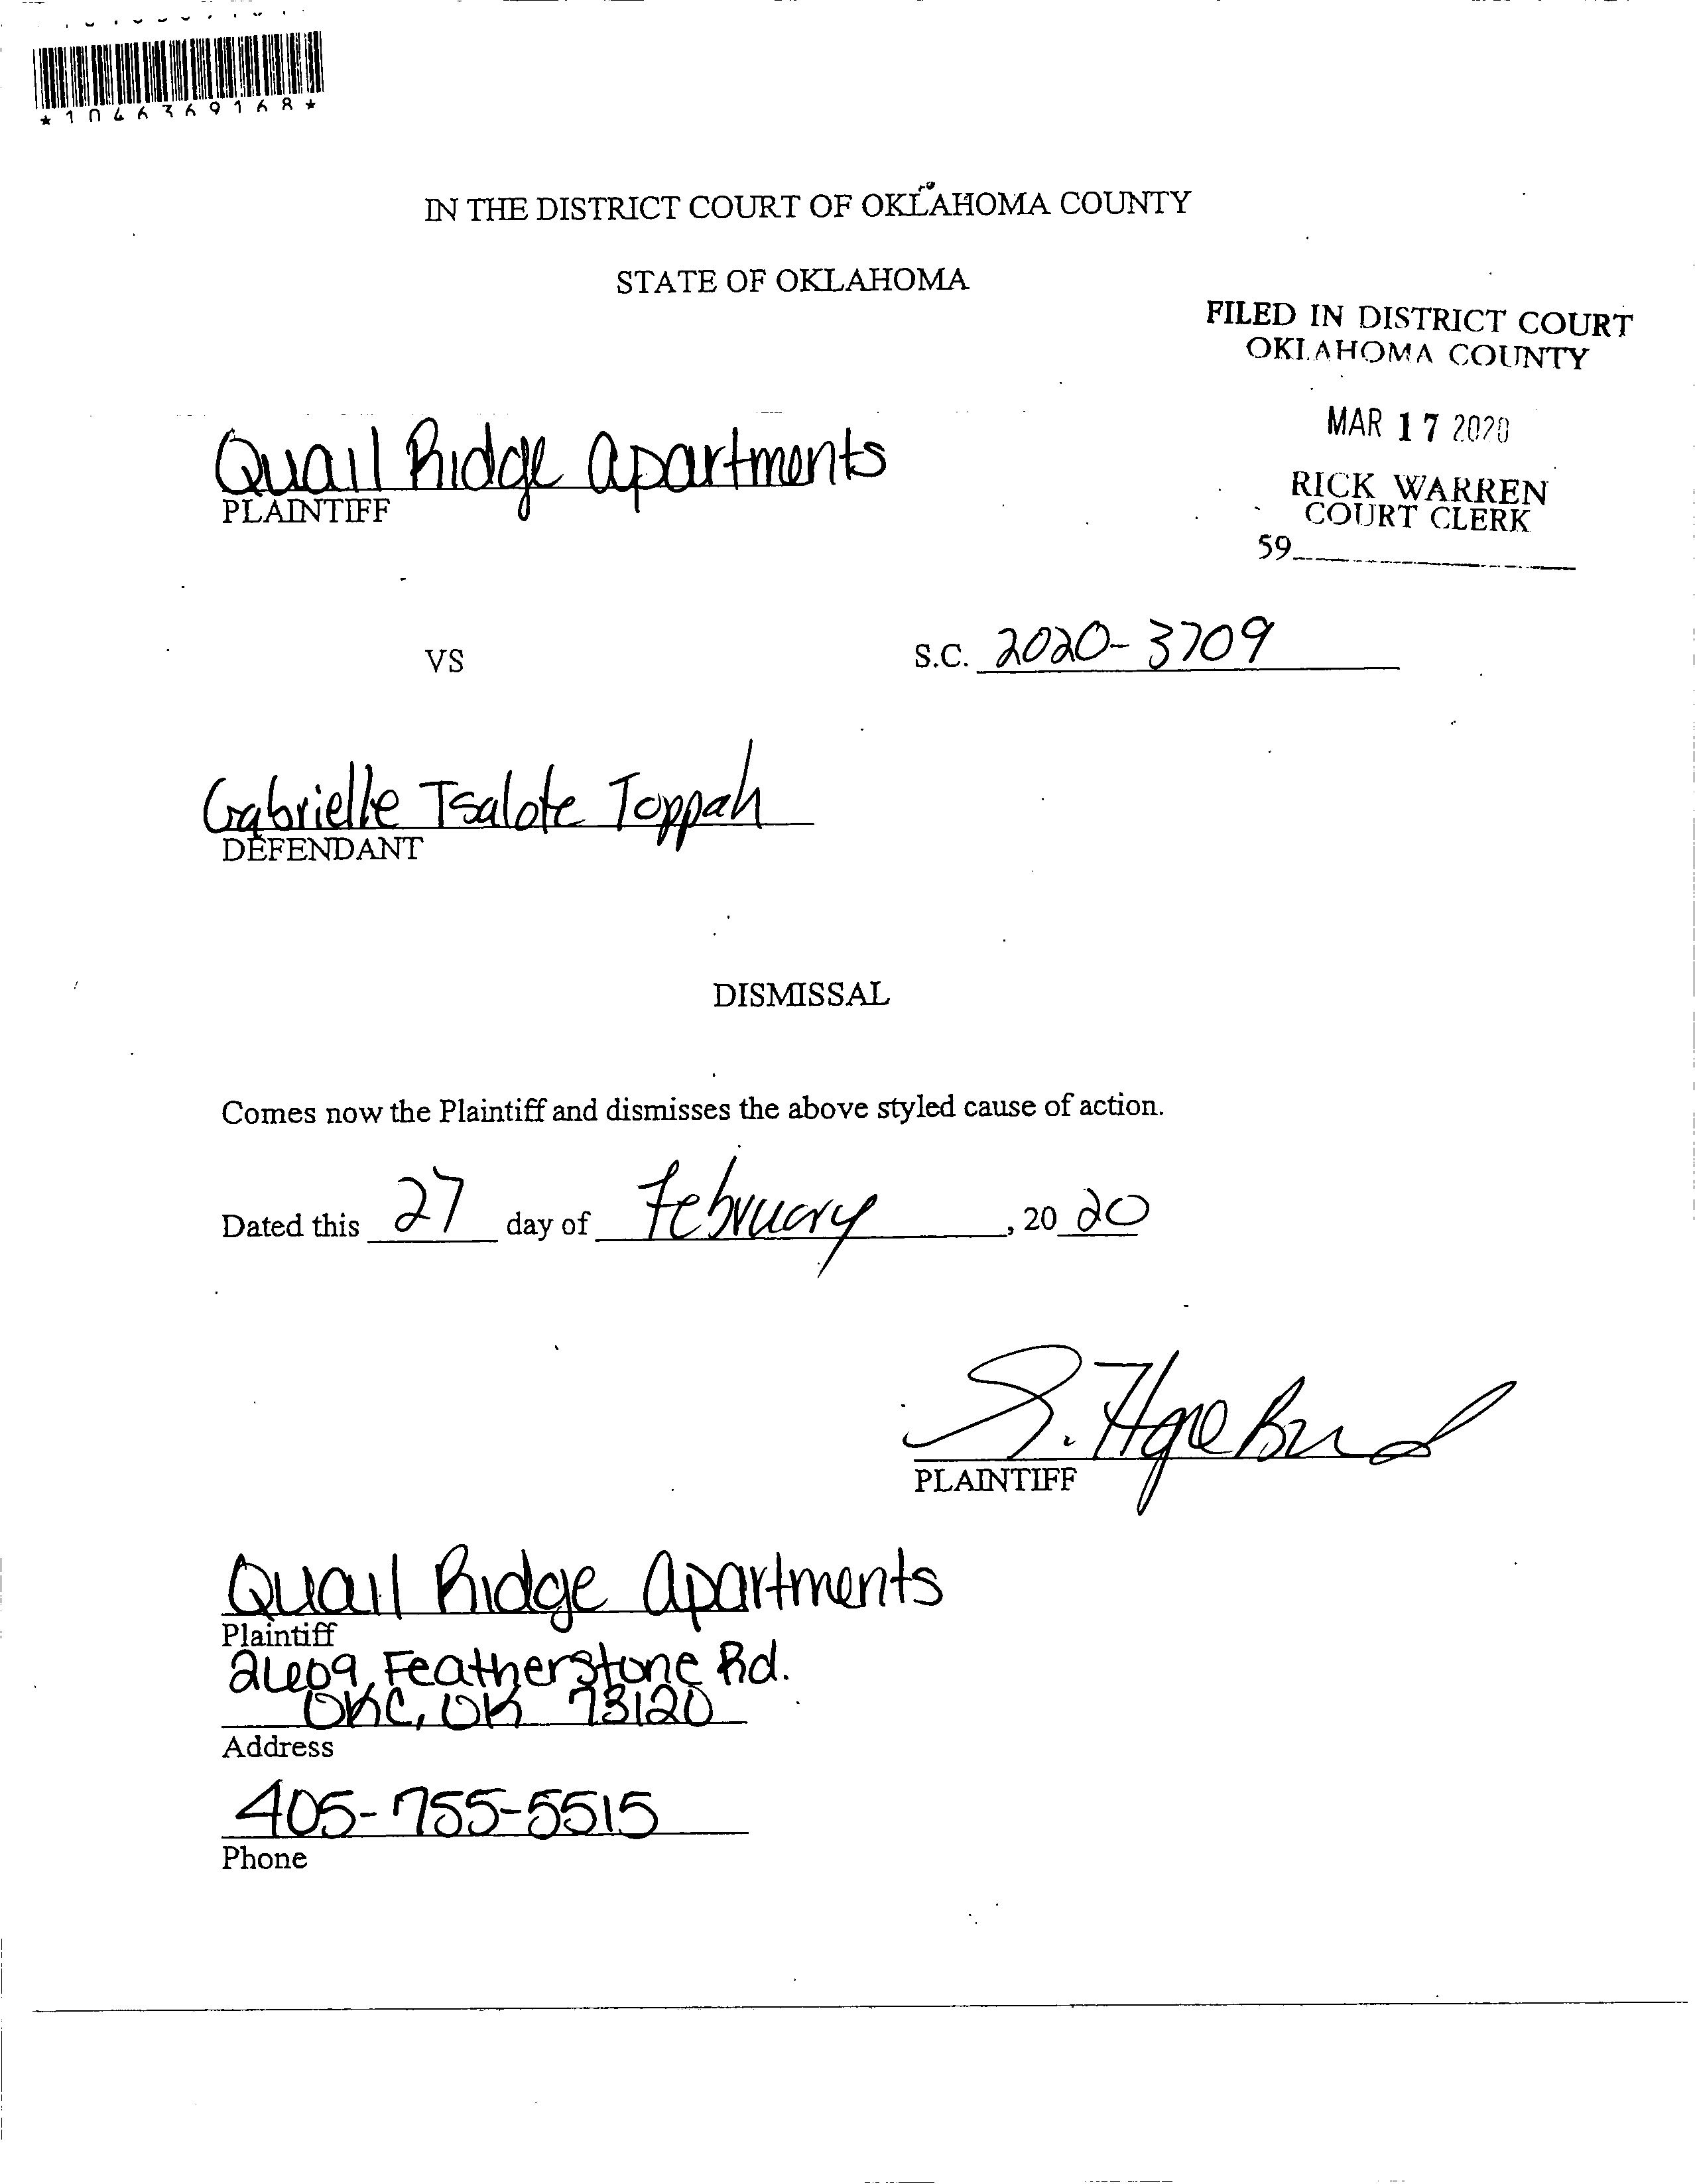 *1046369168*
IN THE DISTRICT COURT OF OKLAHOMA COUNTY
STATE OF OKLAHOMA
FILED IN DISTRICT COURT
OKLAHOMA COUNTY
MAR 17 2020
RICK WARREN
COURT CLERK
59
Quail Ridge Apartments
PLAINTIFF
VS
S.C. 2020-3709
Gabrielle Tsalote Toppah
DEFENDANT
DISMISSAL
Comes now the Plaintiff and dismisses the above styled cause of action.
Dated this 27 day of February, 2020
S.
PLAINTIFF
Quail Ridge Apartments
Plaintiff
2609 Featherstone Rd.
OKC, OK 73120
Address
405-755-5515
Phone